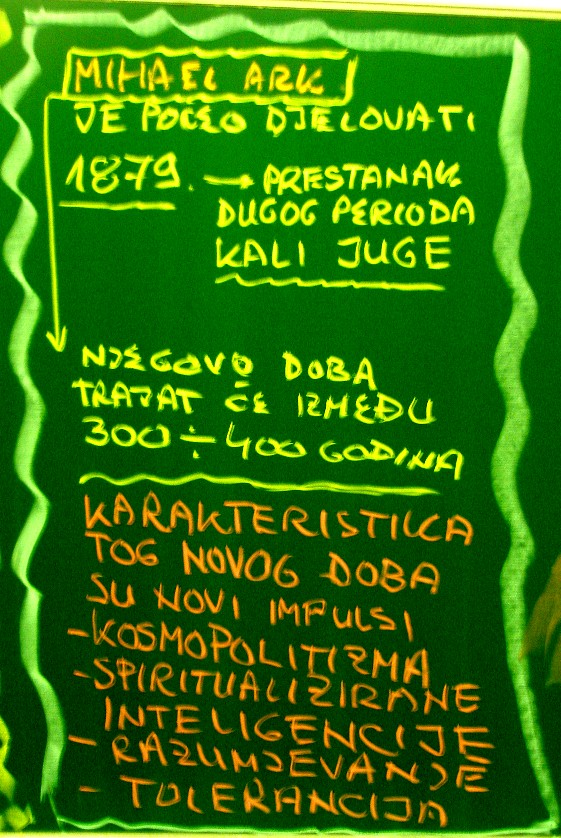 MIHAEL ARK
JE POČEO DJELOVATI
1879. → PRESTANAK
DUGOG PERIODA
KALI JUGE
NJEGOVO DOBA
TRAJAT ĆE IZMEĐU
300 ÷ 400 GODINA
KARAKTERISTIKA
TOG NOVOG DOBA
SU NOVI IMPULSI
-KOSMOPOLITIZMA
-SPIRITUALIZIRANE
INTELIGENCIJE
- RAZUMJEVANJE
- TOLERANCIJA